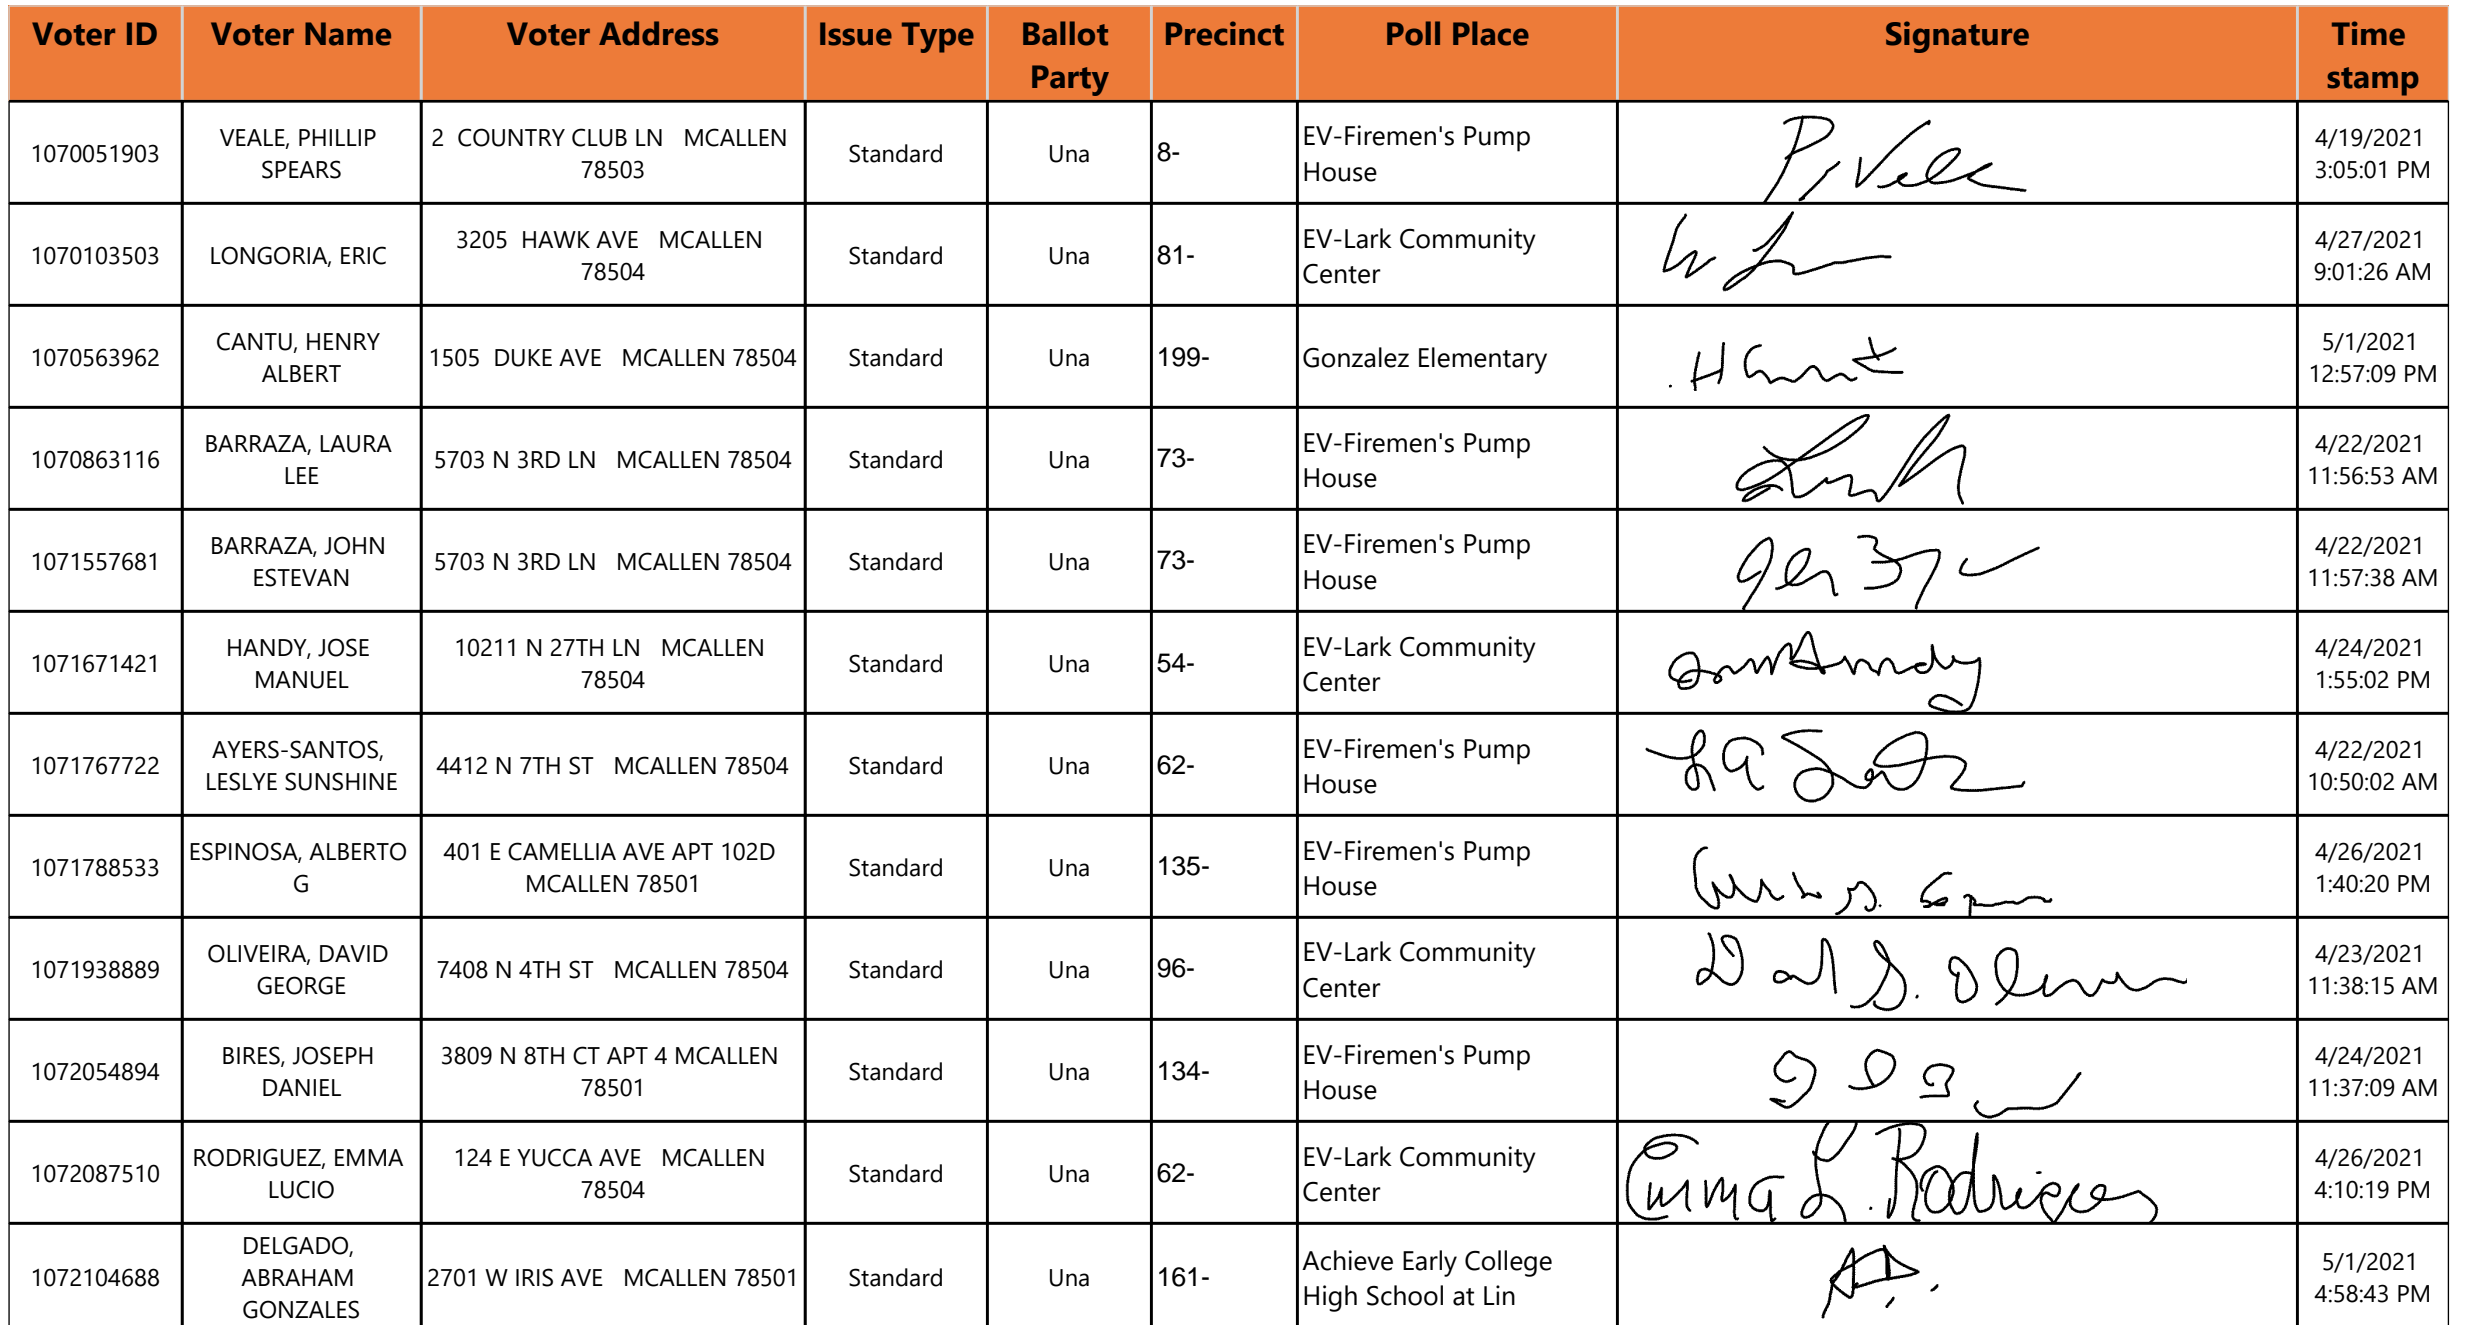 Voter ID Voter Name Voter Address Issue Type Ballot Party Precinct Poll Place Signature Time stamp
1070051903 VEALE, PHILLIP SPEARS 2 COUNTRY CLUB LN MCALLEN 78503 Standard Una 8- EV-Firemen's Pump House 4/19/2021 3:05:01 PM
1070103503 LONGORIA, ERIC 3205 HAWK AVE MCALLEN 78504 Standard Una 81- EV-Lark Community Center 4/27/2021 9:01:26 AM
1070563962 CANTU, HENRY ALBERT 1505 DUKE AVE MCALLEN 78504 Standard Una 199- Gonzalez Elementary 5/1/2021 12:57:09 PM
1070863116 BARRAZA, LAURA LEE 5703 N 3RD LN MCALLEN 78504 Standard Una 73- EV-Firemen's Pump House 4/22/2021 11:56:53 AM
1071557681 BARRAZA, JOHN ESTEVAN 5703 N 3RD LN MCALLEN 78504 Standard Una 73- EV-Firemen's Pump House 4/22/2021 11:57:38 AM
1071671421 HANDY, JOSE MANUEL 10211 N 27TH LN MCALLEN 78504 Standard Una 54- EV-Lark Community Center 4/24/2021 1:55:02 PM
1071767722 AYERS-SANTOS, LESLYE SUNSHINE 4412 N 7TH ST MCALLEN 78504 Standard Una 62- EV-Firemen's Pump House 4/22/2021 10:50:02 AM
1071788533 ESPINOSA, ALBERTO G 401 E CAMELLIA AVE APT 102D MCALLEN 78501 Standard Una 135- EV-Firemen's Pump House 4/26/2021 1:40:20 PM
1071938889 OLIVEIRA, DAVID GEORGE 7408 N 4TH ST MCALLEN 78504 Standard Una 96- EV-Lark Community Center 4/23/2021 11:38:15 AM
1072054894 BIRES, JOSEPH DANIEL 3809 N 8TH CT APT 4 MCALLEN 78501 Standard Una 134- EV-Firemen's Pump House 4/24/2021 11:37:09 AM
1072087510 RODRIGUEZ, EMMA LUCIO 124 E YUCCA AVE MCALLEN 78504 Standard Una 62- EV-Lark Community Center Emma L. Rodriguez 4/26/2021 4:10:19 PM
1072104688 DELGADO, ABRAHAM GONZALES 2701 W IRIS AVE MCALLEN 78501 Standard Una 161- Achieve Early College High School at Lin 5/1/2021 4:58:43 PM